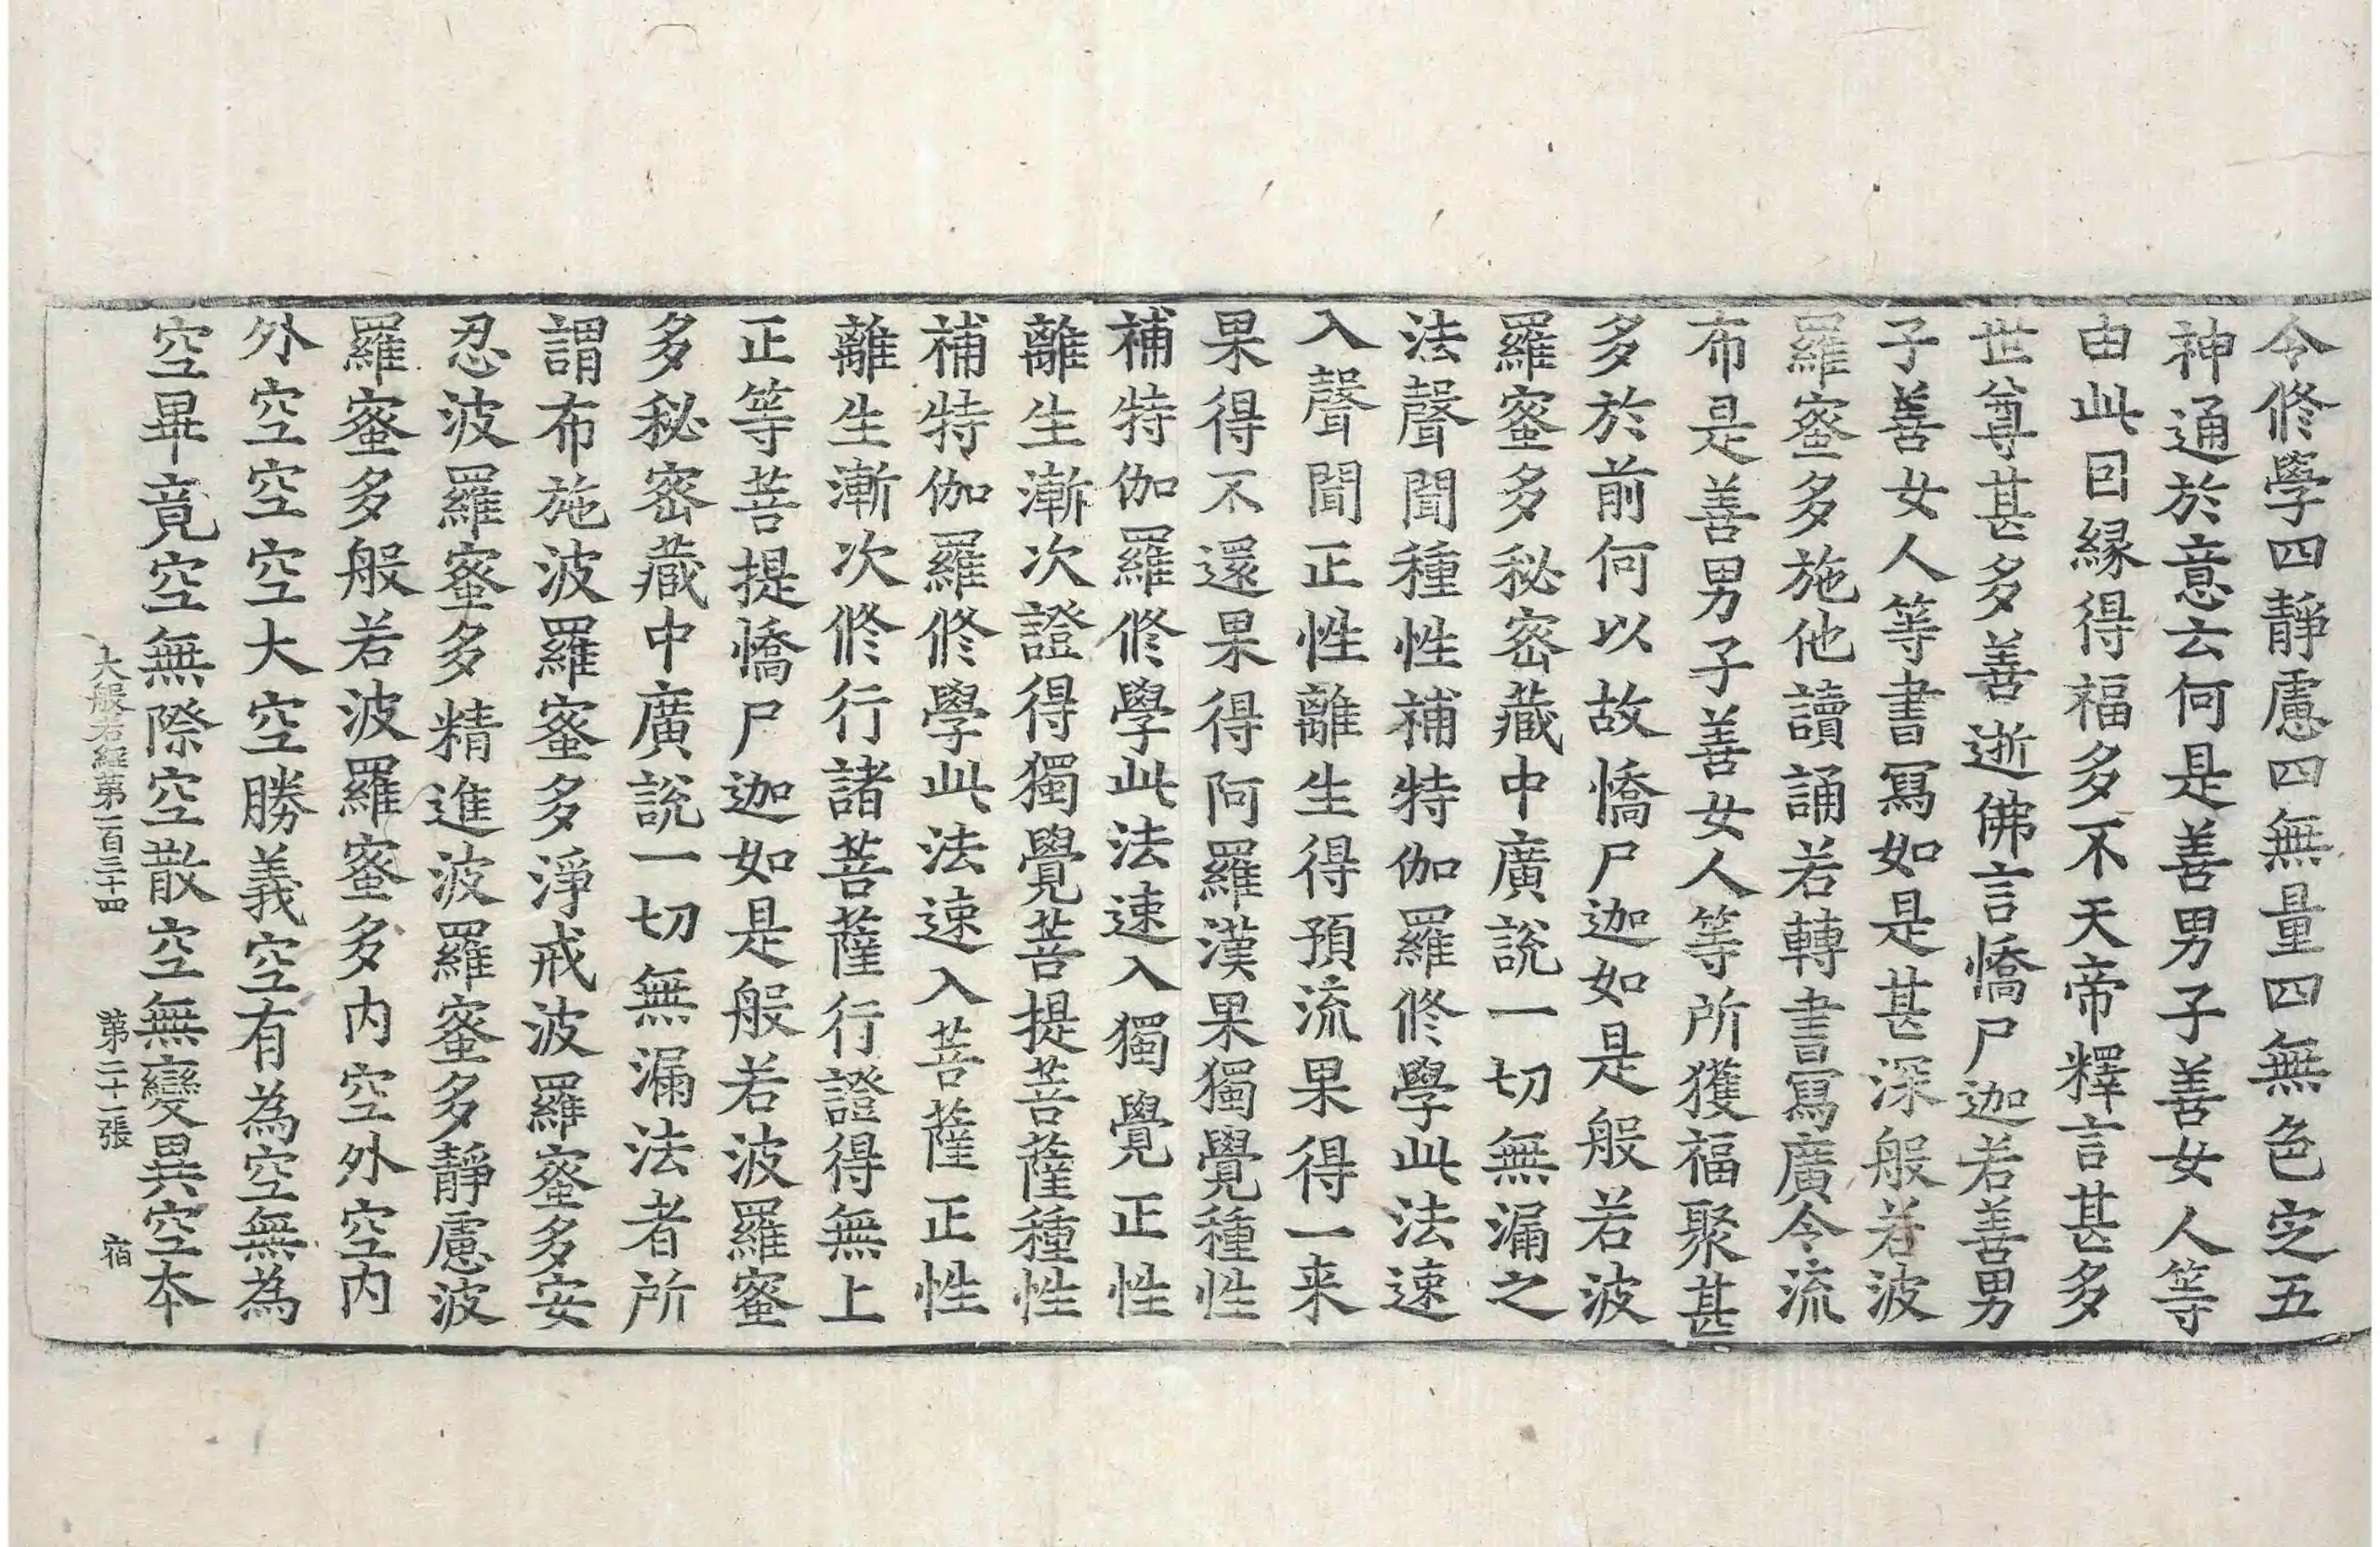 令修學四靜慮四無量四無色㝎五
神通於意云何是善男子善女人等
由此囙緣得福多不天帝釋言甚多
世尊甚多善逝佛言憍尸迦若善男
子善女人等書寫如是甚深般若波
羅蜜多施他讀誦若轉書寫廣令流
布是善男子善女人等所獲福聚甚
多於前何以故憍尸迦如是般若波
羅蜜多秘密藏中廣說一切無漏之
法聲聞種性補特伽羅修學此法速
入聲聞正性離生得預流果得一来
果得不還果得阿羅漢果獨覺種性
補特伽羅修學此法速入獨覺正性
離生漸次證得獨覺菩提菩薩種性
補特伽羅修學此法速入菩薩正性
離生漸次修行諸菩薩行證得無上
正等菩提憍尸迦如是般若波羅蜜
多秘密藏中廣說一切無漏法者所
謂布施波羅蜜多淨戒波羅蜜多安
忍波羅蜜多精進波羅蜜多靜慮波
羅蜜多般若波羅蜜多内空外空内
外空空空大空勝義空有為空無為
空畢竟空無際空散空無變異空本
大般若經第一百三十四 第二十一張 宿